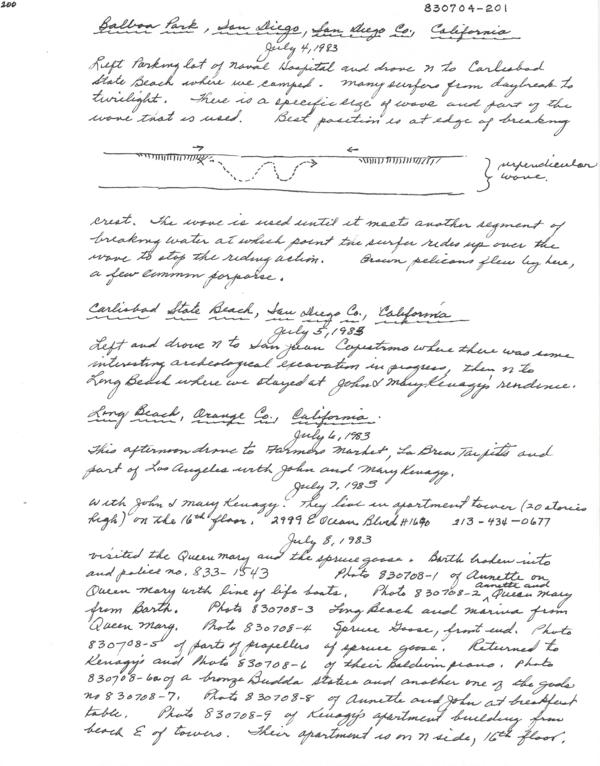 200
830704-201
Balboa Park, San Diego, San Diego Co., California
July 4, 1983
Left Parking lot of Naval Hospital and drove N to Carlisbad
State Beach where we camped. Many surfers from daybreak to
twilight. There is a specific size of wave and part of the
wave that is used. Best position is at edge of breaking
perpendicular
wave.
crest. The wave is used until it meets another segment of
breaking water at which point the surfer rides up over the
wave to stop the riding action. Brown pelicans flew by here,
a few common porpoise.
Carlisbad State Beach, San Diego Co., California
July 5, 1983
Left and drove N to San Juan Capestrano where there was some
interesting archeological excavation in progress, then N to
Long Beach where we stayed at John & Mary Kenagy's residence.
Long Beach, Orange Co., California.
July 6, 1983
This afternoon drove to Farmers Market, La Brea Tar pits and
part of Los Angeles with John and Mary Kenagy.
July 7, 1983
With John & Mary Kenagy. They live in apartment tower (20 stories
high) on the 16th floor. 2999 E Ocean Blvd #1690 213-434-0677
July 8, 1983
visited the Queen Mary and the spruce goose. Barth broken into
and police no. 833-1543 Photo 830708-1 of Annette on
Queen Mary with line of life boats. Photo 830708-2 ^ annette and Queen Mary
from Barth. Photo 830708-3 Long Beach and marina from
Queen Mary. Photo 830708-4 Spruce Goose, front end. Photo
830708-5 of parts of propellers of spruce goose. Returned to
Kenagy's and Photo 830708-6 of their Baldwin piano. Photo
830708-6a of a bronze Budda statue and another one of the gods
no 830708-7. Photo 830708-8 of Annette and John at breakfast
table. Photo 830708-9 of Kenagy's apartment building from
beach E of towers. Their apartment is on N side, 16th floor.